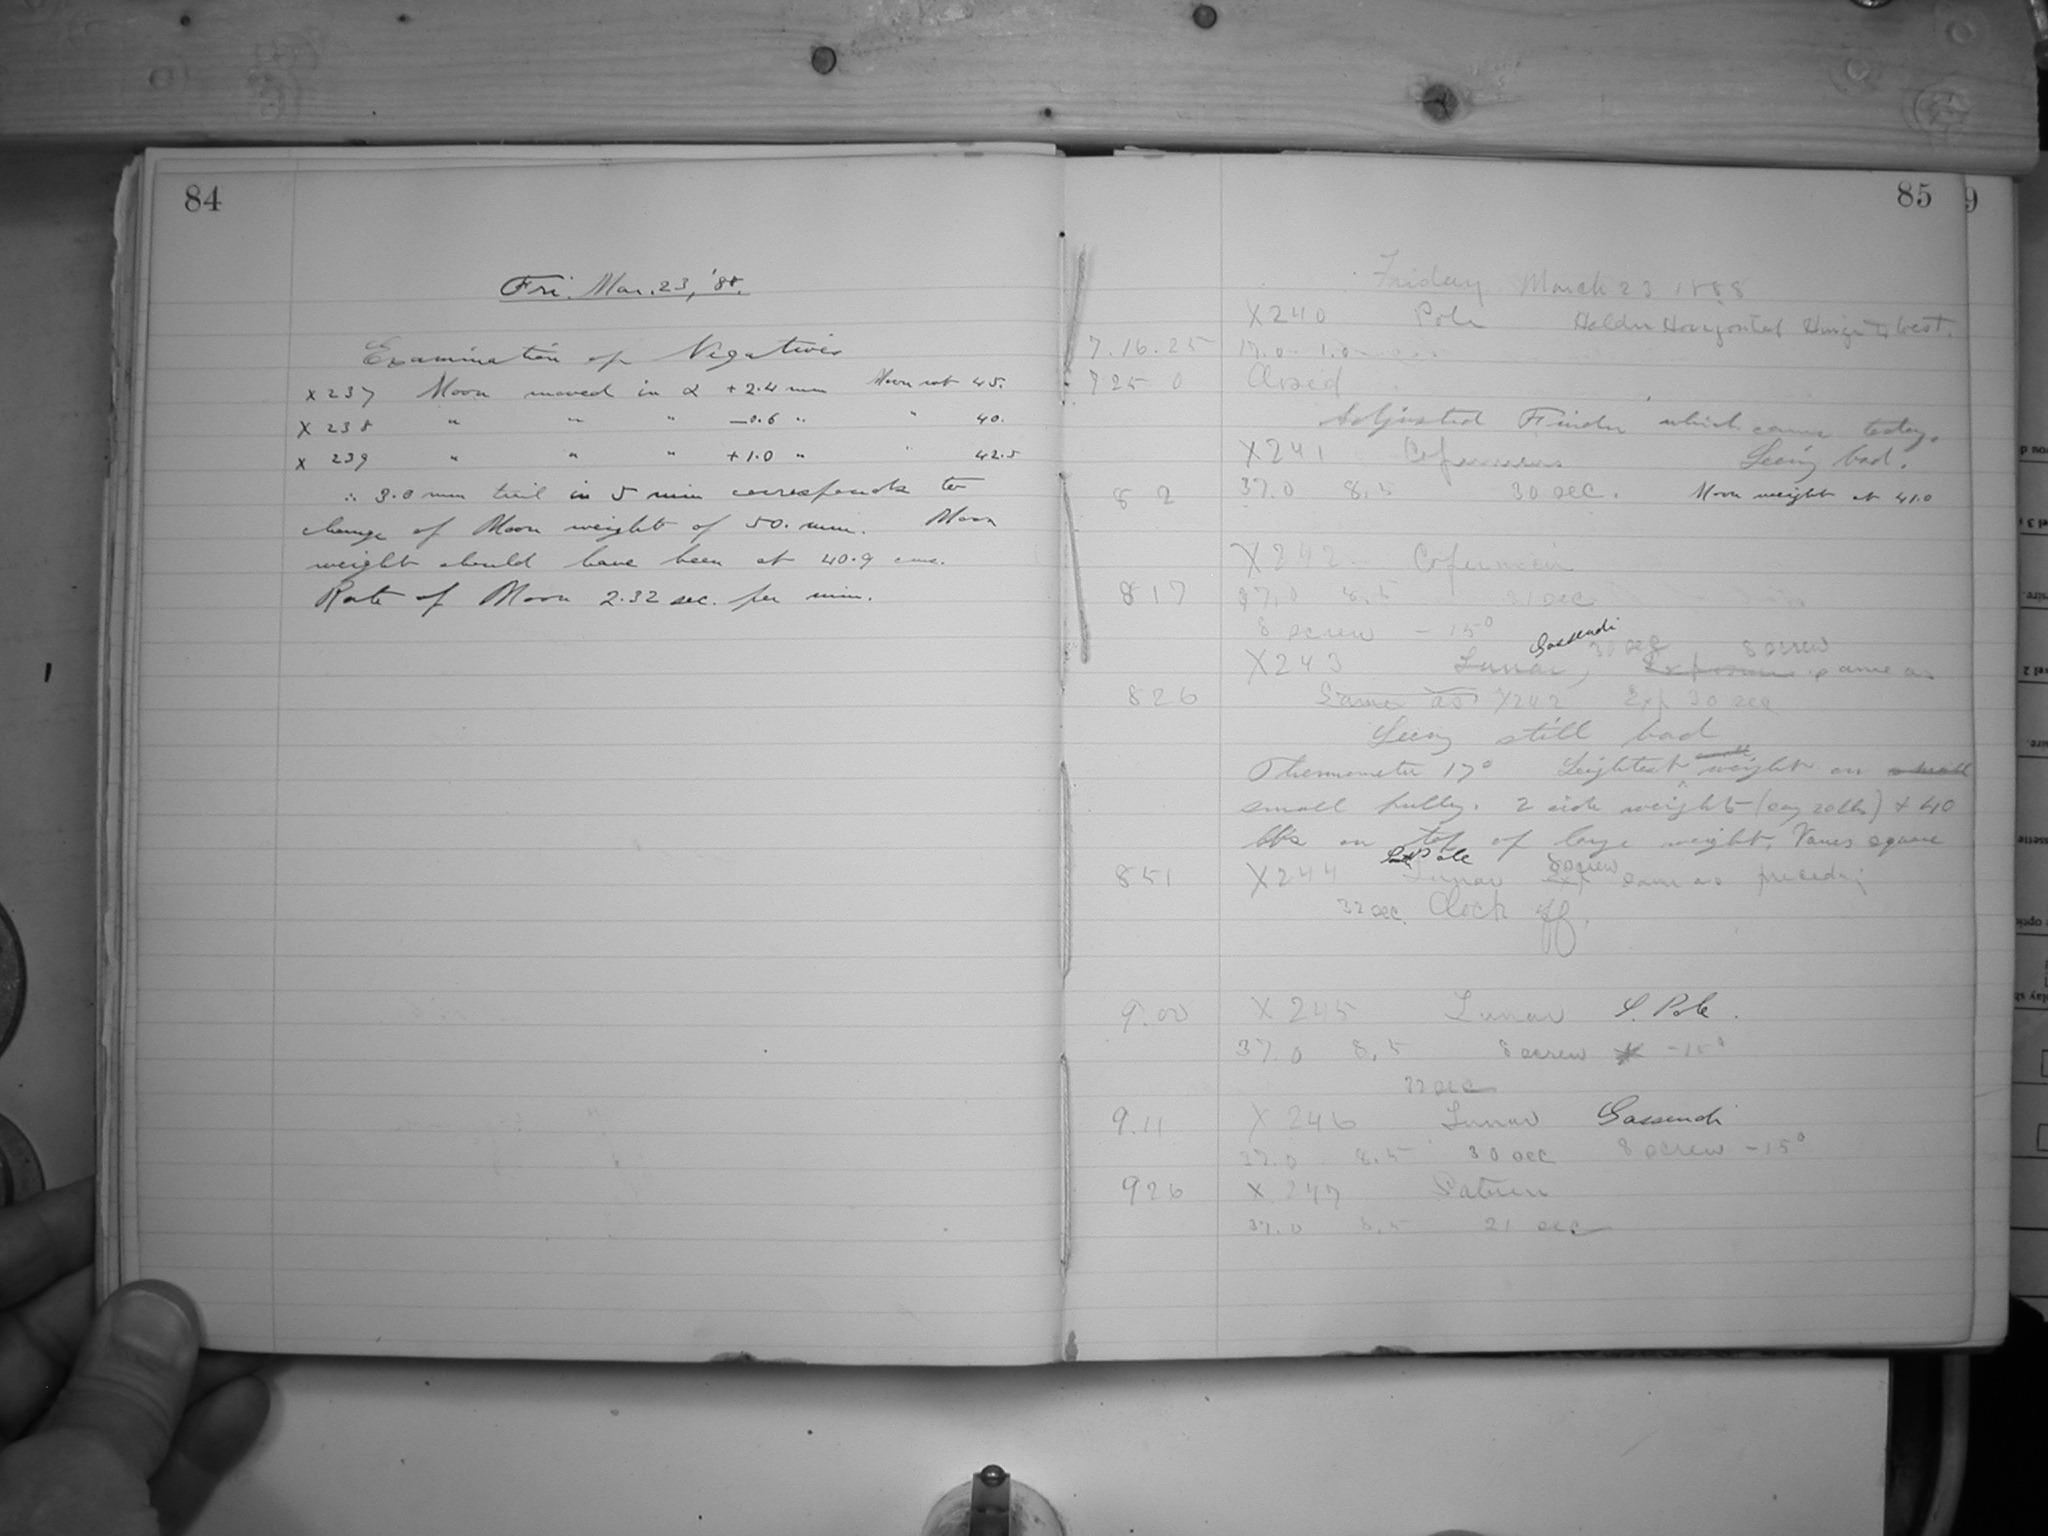 84
Fri. Mar. 23, '88.
Examination of Negatives
X 237 Moon moved in α + 2.4 mm Moon wt 45.
X 238 " " " — 0.6 " " 40.
X 239 " " " + 1.0 " " 42.5
∴ 3.0 mm trail in 5 min corresponds to
change of Moon weight of 50. mm. Moon
weight should have been at 40.9 cms.
Rate of Moon 2.32 sec. per min.
85
Friday March 23 1888
X240 Pole Holder Horizontal Hinge to West.
7.16.25 17.0 1.0
7 25 0 Closed
Adjusted Finder which came today.
X241 Copernicus Seeing bad.
8 2 37.0 8.5 30 sec. Moon weight at 41.0
X242 Copernicus
8 17 37.0 8.5 31 sec
8 screw - 15°
Gassendi 30 sec 8 screw
X243 Lunar, Exposure same as
8 26 Same as X242 Exp 30 sec
Seeing still bad
Thermometer 17° Lightest small weight on small
small pulley. 2 side weights (say 20 lbs) + 40
lbs on top of large weight, Vanes square
South Pole 8 screw
8 51 X244 Lunar Exp same as preceding
32 sec. Clock off.
9.00 X 245 Lunar S. Pole.
37.0 8.5 8 screw -15°
32 sec
9.11 X 246 Lunar Gassendi
37.0 8.5 30 sec 8 screw -15°
9 26 X 247 Saturn
37.0 8.5 21 sec